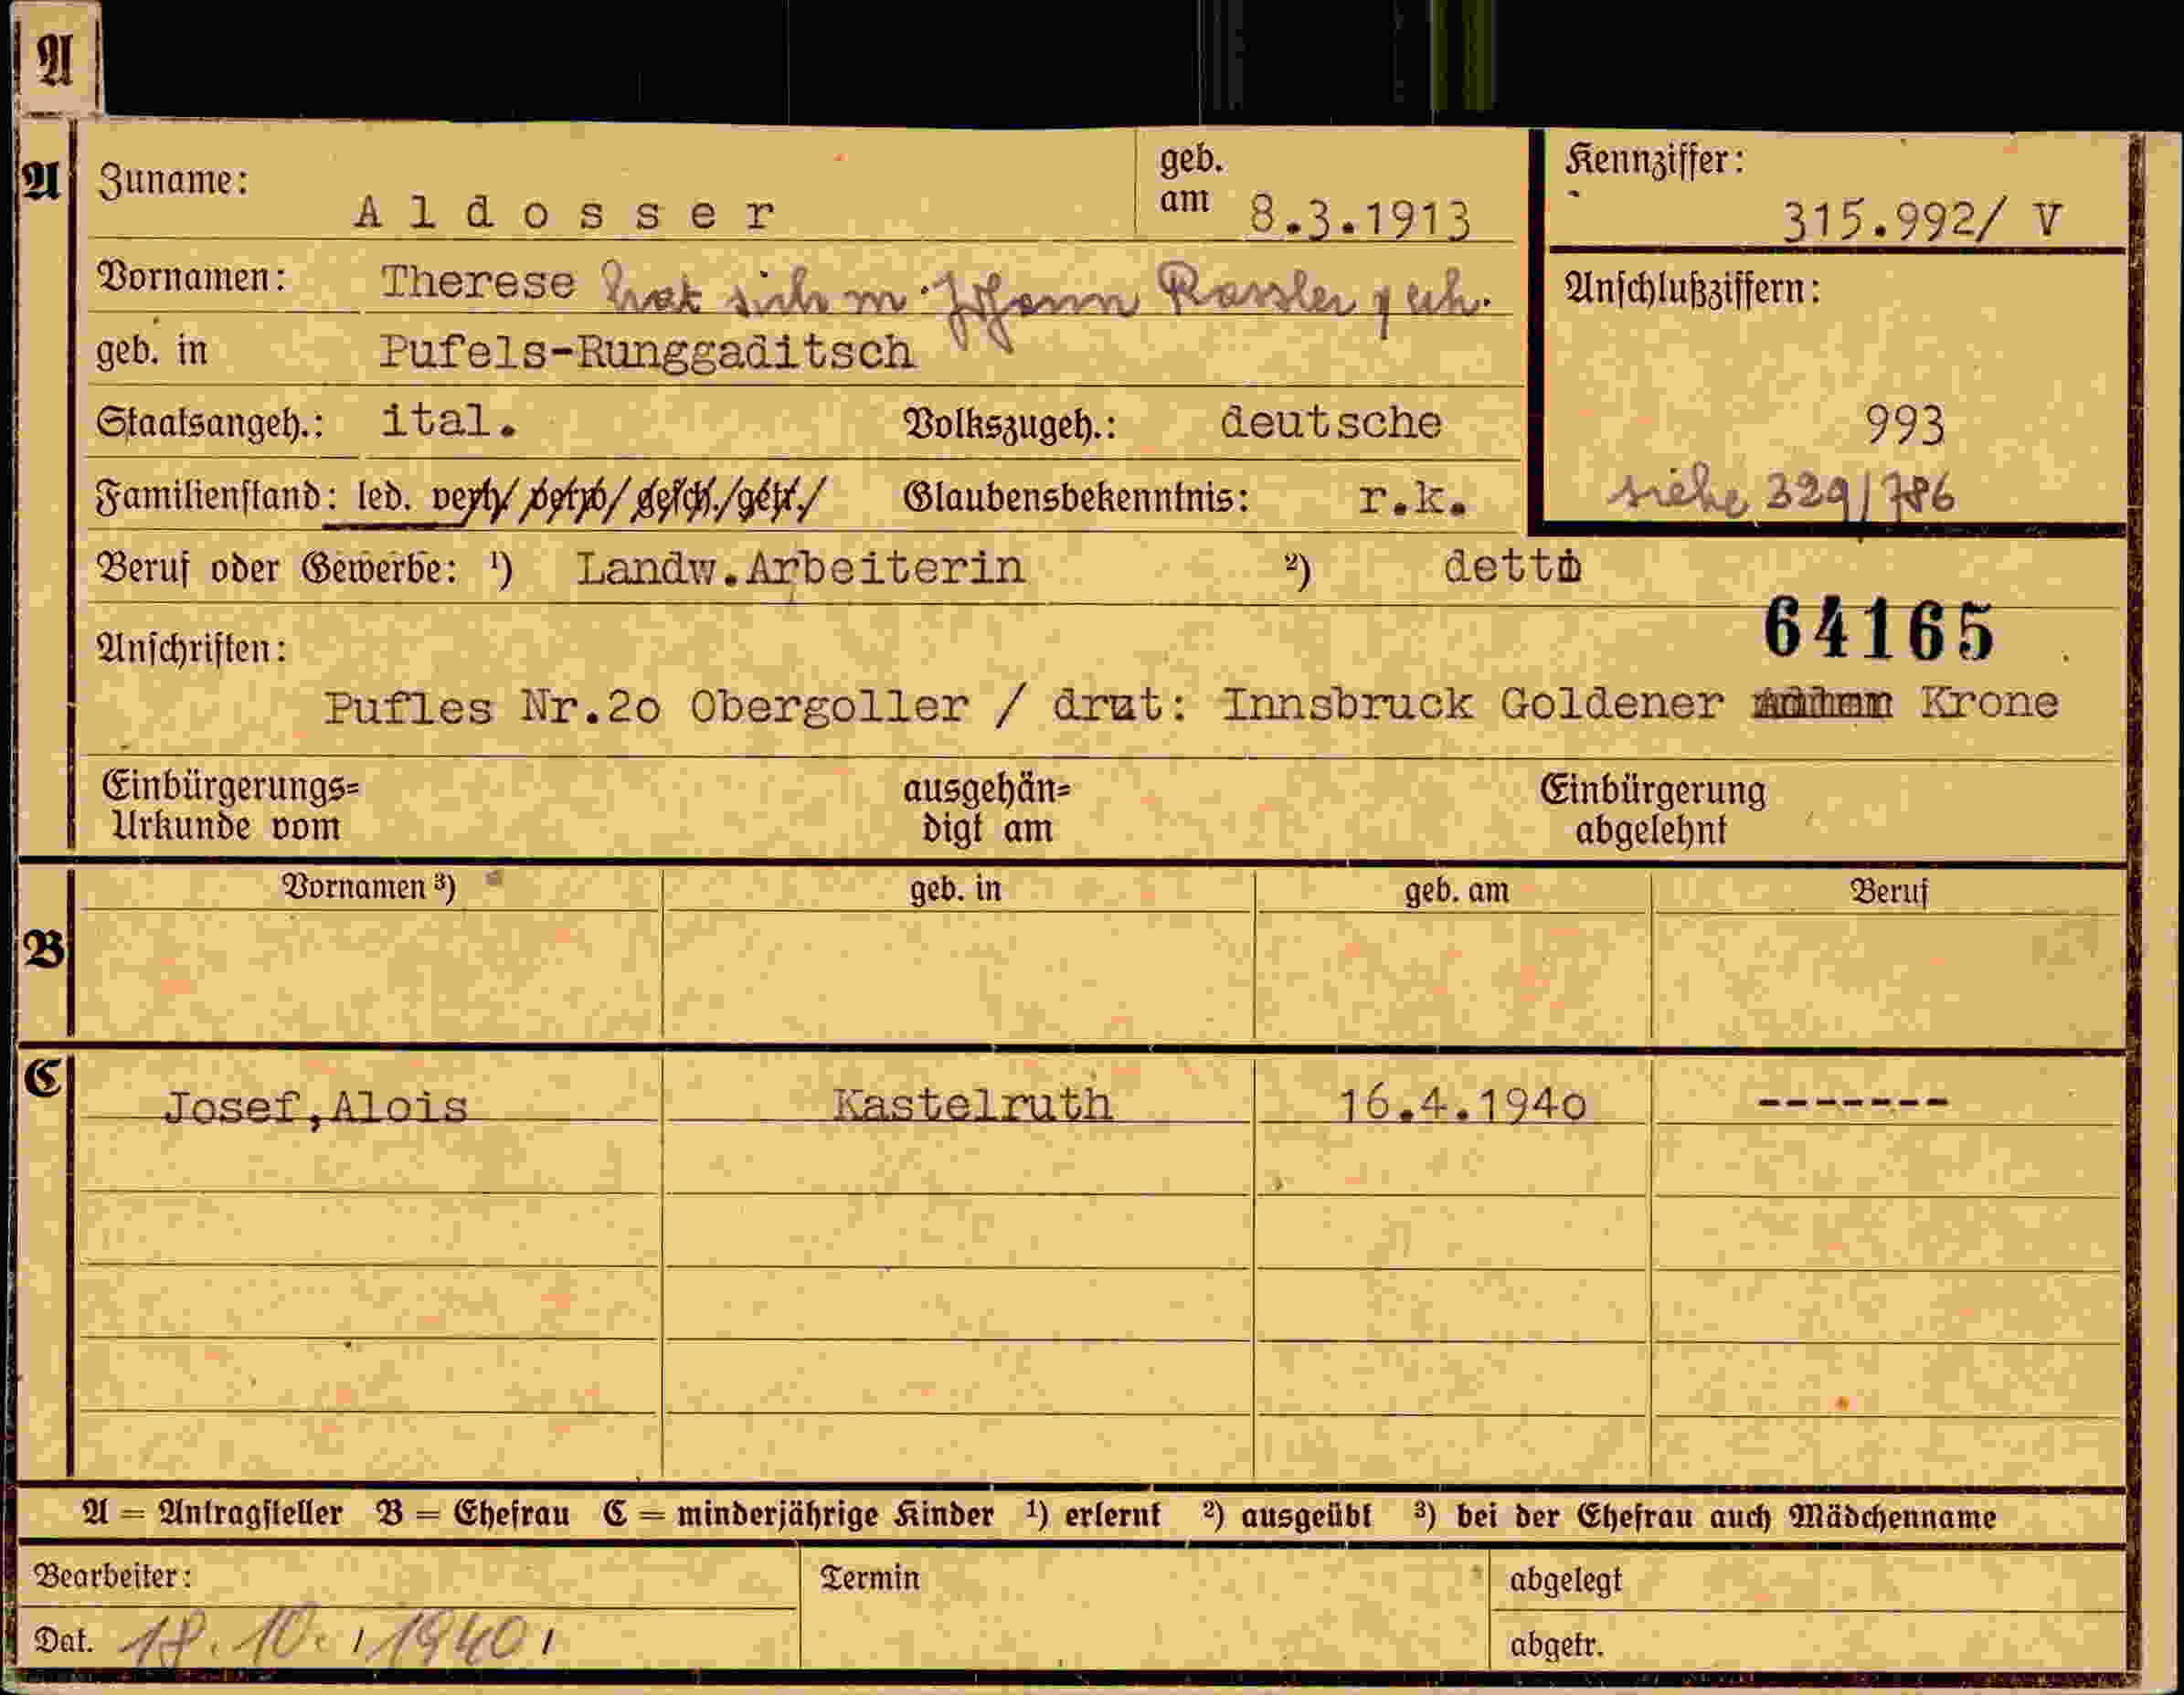 A
A
Zuname: Aldosser geb. am 8.3.1913
Kennziffer: 315.992/ V
Vornamen: Therese hat sich m. Johann Rassler geh.
Anschlußziffern:
geb. in Pufels-Runggaditsch
Staatsangeh.: ital. Volkszugeh.: deutsche
993
Familienstand: led. verh/ verw/ gesch./getr./ Glaubensbekenntnis: r.k.
siehe 329/786
Beruf oder Gewerbe: ¹) Landw.Arbeiterin ²) detto
64165
Anschriften:
Pufles Nr.2o Obergoller / drzt: Innsbruck Goldener Krone
Einbürgerungs=
Urkunde vom
ausgehän=
digt am
Einbürgerung
abgelehnt
B
Vornamen ³) geb. in geb. am Beruf
C
Josef,Alois Kastelruth 16.4.194o -------
A = Antragsteller B = Ehefrau C = minderjährige Kinder ¹) erlernt ²) ausgeübt ³) bei der Ehefrau auch Mädchenname
Bearbeiter: Termin abgelegt
Dat. 18.10.1940 abgetr.